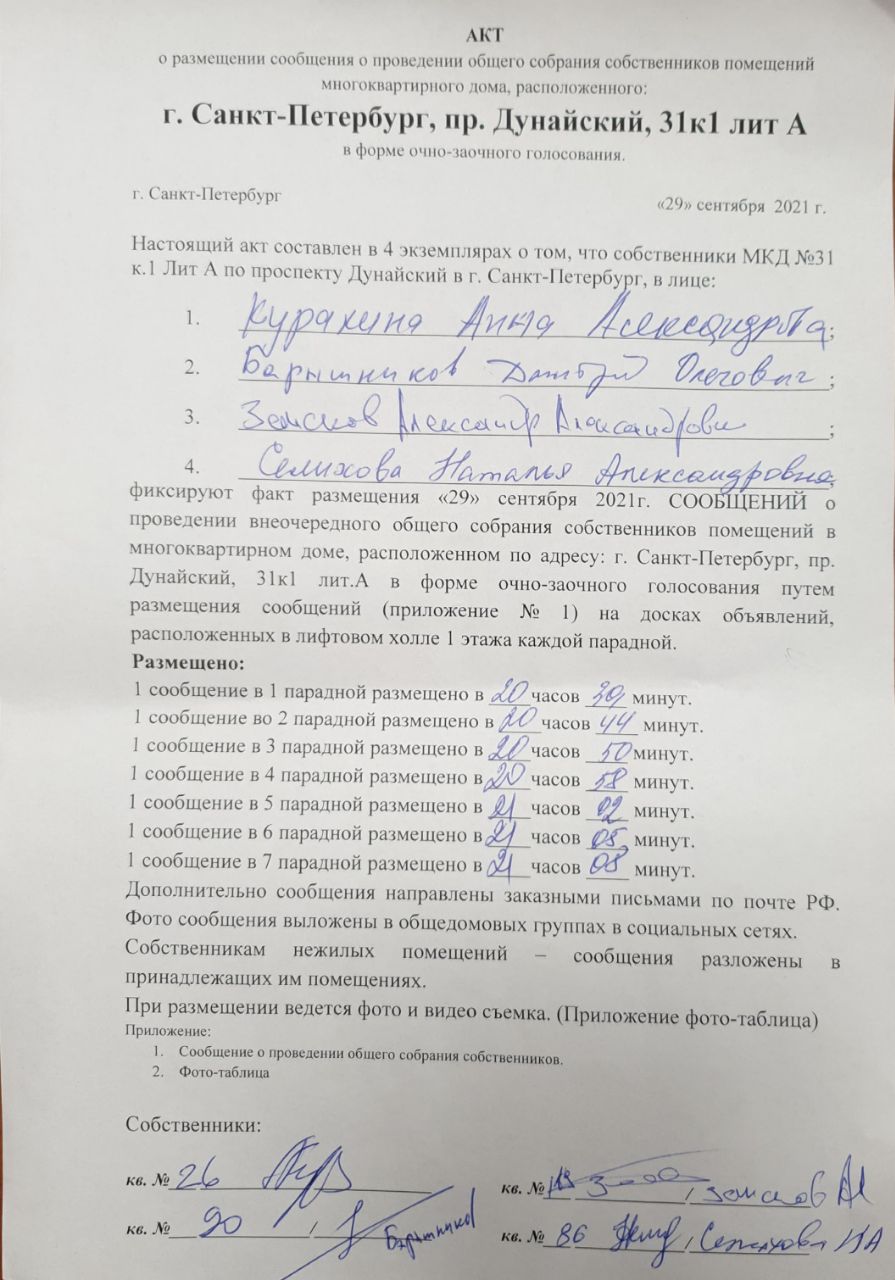 АКТ
о размещении сообщения о проведении общего собрания собственников помещений
многоквартирного дома, расположенного:
г. Санкт-Петербург, пр. Дунайский, 31к1 лит А
в форме очно-заочного голосования.
г. Санкт-Петербург «29» сентября 2021 г.
Настоящий акт составлен в 4 экземплярах о том, что собственники МКД №31
к.1 Лит А по проспекту Дунайский в г. Санкт-Петербург, в лице:
1. Куракина Анна Александровна;
2. Барышников Дмитрий Олегович;
3. Земсков Александр Александрович;
4. Селихова Наталья Александровна;
фиксируют факт размещения «29» сентября 2021г. СООБЩЕНИЙ о
проведении внеочередного общего собрания собственников помещений в
многоквартирном доме, расположенном по адресу: г. Санкт-Петербург, пр.
Дунайский, 31к1 лит.А в форме очно-заочного голосования путем
размещения сообщений (приложение № 1) на досках объявлений,
расположенных в лифтовом холле 1 этажа каждой парадной.
Размещено:
1 сообщение в 1 парадной размещено в 20 часов минут.
1 сообщение во 2 парадной размещено в 20 часов 44 минут.
1 сообщение в 3 парадной размещено в 20 часов 50 минут.
1 сообщение в 4 парадной размещено в 20 часов 58 минут.
1 сообщение в 5 парадной размещено в 21 часов 02 минут.
1 сообщение в 6 парадной размещено в 21 часов 05 минут.
1 сообщение в 7 парадной размещено в 21 часов 08 минут.
Дополнительно сообщения направлены заказными письмами по почте РФ.
Фото сообщения выложены в общедомовых группах в социальных сетях.
Собственникам нежилых помещений – сообщения разложены в
принадлежащих им помещениях.
При размещении ведется фото и видео съемка. (Приложение фото-таблица)
Приложение:
1. Сообщение о проведении общего собрания собственников.
2. Фото-таблица
Собственники:
кв. № 26 кв. № / Земсков АА
кв. № 90 / Барышников кв. № 86 / Селихова НА